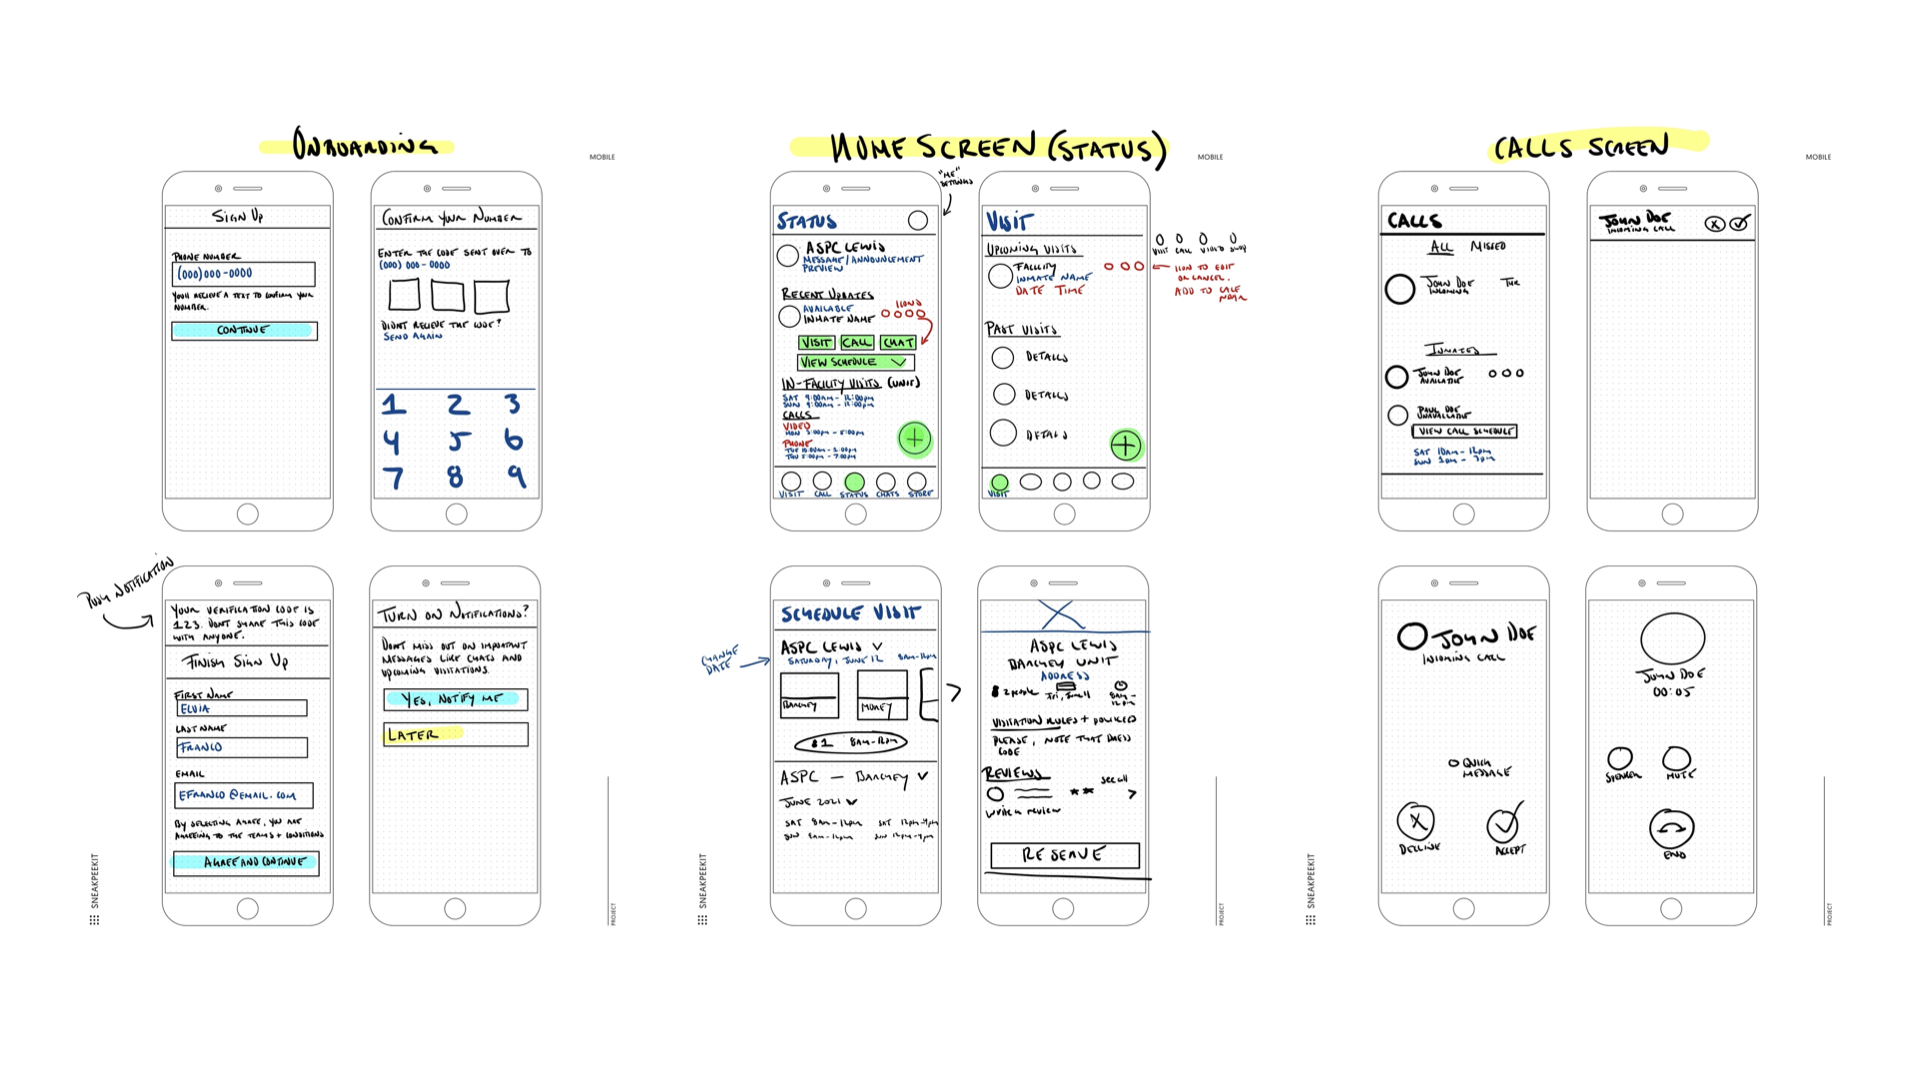 ONBOARDING
MOBILE
SIGN UP
PHONE NUMBER
(000) 000-0000
YOU'LL RECIEVE A TEXT TO CONFIRM YOUR
NUMBER.
CONTINUE
CONFIRM YOUR NUMBER
ENTER THE CODE SENT OVER TO
(000) 000-0000
DIDNT RECIEVE THE CODE?
SEND AGAIN
1 2 3
4 5 6
7 8 9
PUSH NOTIFICATION
YOUR VERIFICATION CODE IS
123. DONT SHARE THIS CODE
WITH ANYONE.
FINISH SIGN UP
FIRST NAME
ELVIA
LAST NAME
FRANCO
EMAIL
EFRANCO@EMAIL.COM
BY SELECTING AGREE, YOU ARE
AGREEING TO THE TERMS + CONDITIONS
AGREE AND CONTINUE
TURN ON NOTIFICATIONS?
DONT MISS OUT ON IMPORTANT
MESSAGES LIKE CHATS AND
UPCOMING VISITATIONS.
YES, NOTIFY ME
LATER
SNEAKPEEKIT
PROJECT
HOME SCREEN (STATUS)
MOBILE
"ME"
SETTINGS
STATUS
ASPC LEWIS
MESSAGE/ANNOUNCEMENT
PREVIEW
RECENT UPDATES
AVAILABLE
INMATE NAME
ICONS
VISIT CALL CHAT
VIEW SCHEDULE
IN-FACILITY VISITS (UNIT)
SAT 9:00AM - 12:00PM
SUN 9:00AM - 12:00PM
CALLS
VIDEO
PHONE
VISIT CALL STATUS CHATS STORE
VISIT
UPCOMING VISITS
FACILITY
INMATE NAME
DATE TIME
PAST VISITS
DETAILS
DETAILS
DETAILS
VISIT
VISIT CALL VIDEO
ICON TO EDIT
OR CANCEL.
ADD TO
CHANGE
DATE
SCHEDULE VISIT
ASPC LEWIS
SATURDAY, JUNE 12 8AM-12PM
BARCHEY
MOREY
1 8AM-12PM
ASPC - BARCHEY
JUNE 2021
SAT 8AM-12PM SAT 12PM-4PM
SUN 8AM-12PM SUN 12PM-4PM
ASPC LEWIS
BARCHEY UNIT
ADDRESS
2 people
8AM-
12PM
VISITATION RULES + POLICIES
PLEASE, NOTE THAT DRESS
CODE
REVIEWS
see all
write a review
RESERVE
SNEAKPEEKIT
PROJECT
CALLS SCREEN
MOBILE
CALLS
ALL MISSED
JOHN DOE
INCOMING
INMATES
JOHN DOE
AVAILABLE
PAUL DOE
UNAVAILABLE
VIEW CALL SCHEDULE
SAT 10AM - 12PM
SUN 1PM - 7PM
JOHN DOE
INCOMING CALL
JOHN DOE
INCOMING CALL
QUICK
MESSAGE
DECLINE
ACCEPT
JOHN DOE
00:05
SPEAKER MUTE
END
SNEAKPEEKIT
PROJECT